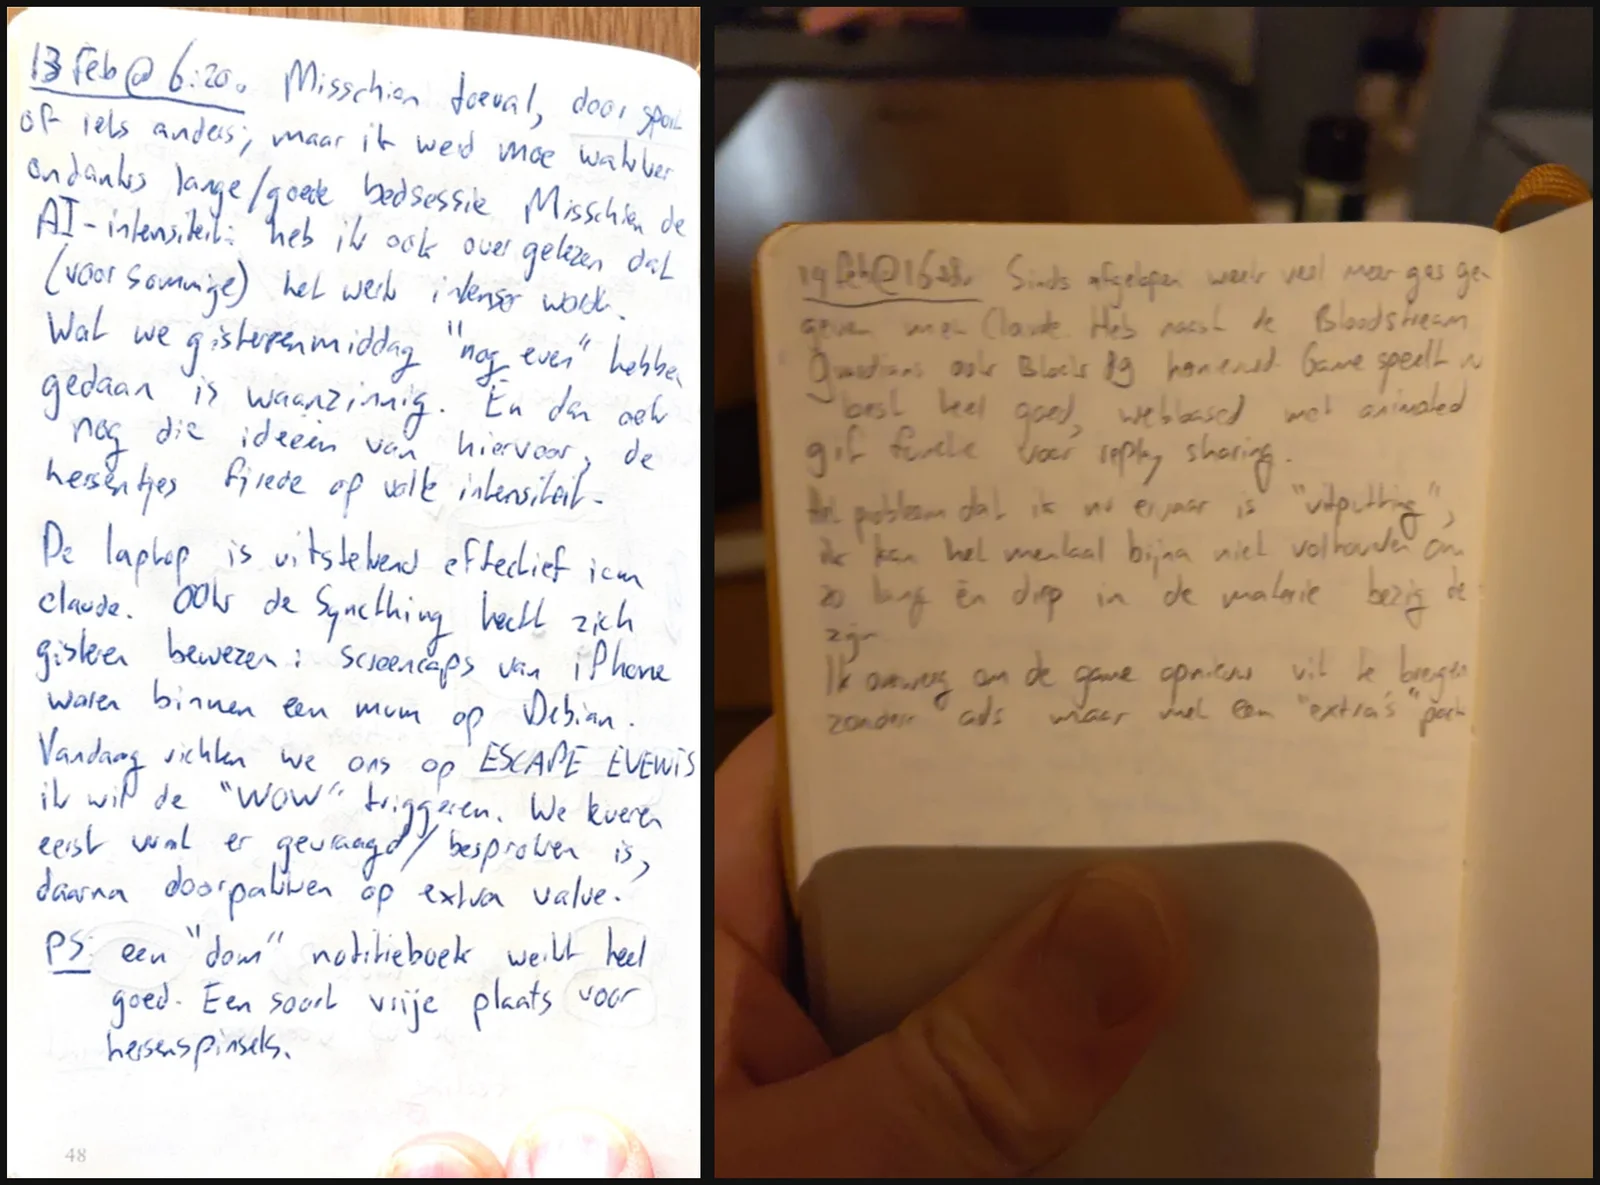 13 Feb @ 6:20. Misschien toeval, door sport
of iets anders, maar ik werd moe wakker
ondanks lange/goede bedsessie Misschien de
AI-intensiteit: heb ik ook over gelezen dat
(voor sommige) het werk intenser wordt.
Wat we gisterenmiddag "nog even" hebben
gedaan is waanzinnig. En dan ook
nog die ideeën van hiervoor, de
hersentjes firede op volle intensiteit.
De laptop is uitstekend effectief icm
claude. Ook de Syncthing heeft zich
gisteren bewezen: screencaps van iPhone
waren binnen een mum op Debian.
Vandaag richten we ons op ESCAPE EVENTS
ik wil de "WOW" triggeren. We leveren
eerst wat er gevraagd/besproken is,
daarna doorpakken op extra value.
PS: een "dom" notitieboek werkt heel
goed. Een soort vrije plaats voor
hersenspinsels.
48
19 feb@16 Sinds afgelopen week veel meer gas ge-
geven met Claude. Heb naast de Bloodstream
Guardians ook Block 89 Game speelt nu
best heel goed, webbased met animated
gif functie voor replay sharing.
Het probleem dat ik nu ervaar is "uitputting",
ik kan het mentaal bijna niet volhouden om
zo lang én diep in de materie bezig te
zijn.
Ik overweeg om de game opnieuw uit te brengen
zonder ads maar met een "extra's" pack